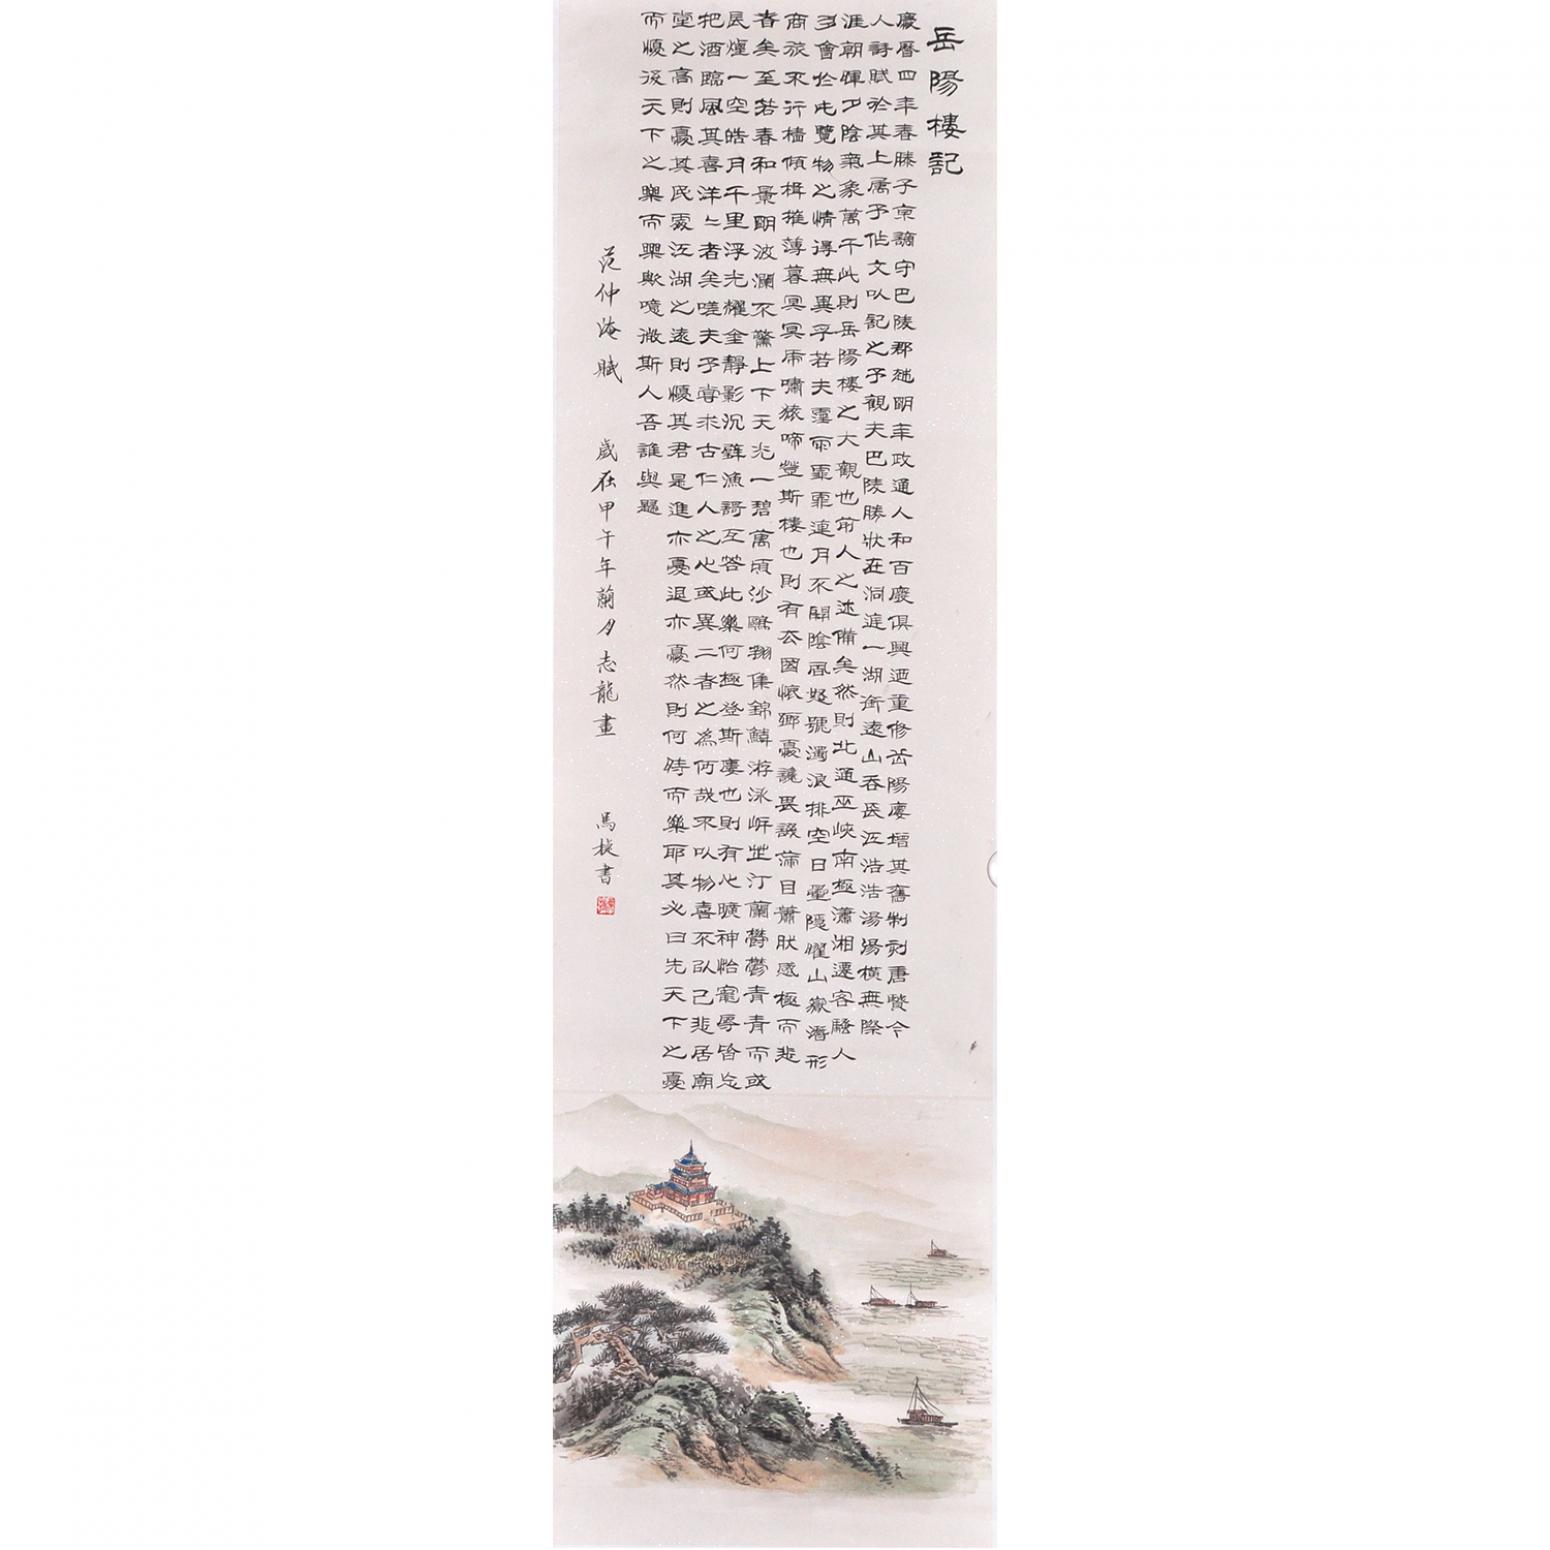 岳陽樓記
慶曆四年春滕子京謫守巴陵郡越明年政通人和百廢俱興迺重修岳陽樓增其舊制刻唐賢今
人詩賦於其上屬予作文以記之予觀夫巴陵勝狀在洞庭一湖銜遠山吞長江浩浩湯湯橫無際
涯朝暉夕陰氣象萬千此則岳陽樓之大觀也前人之述備矣然則北通巫峽南極瀟湘遷客騷人
多會於此覽物之情得無異乎若夫霪雨霏霏連月不開陰風怒號濁浪排空日星隱曜山嶽潛形
商旅不行檣傾楫摧薄暮冥冥虎嘯猿啼登斯樓也則有去國懷鄉憂讒畏譏滿目蕭然感極而悲
者矣至若春和景明波瀾不驚上下天光一碧萬頃沙鷗翔集錦鱗游泳岸芷汀蘭鬱鬱青青而或
長煙一空皓月千里浮光耀金靜影沉璧漁謌互答此樂何極登斯樓也則有心曠神怡寵辱皆忘
把酒臨風其喜洋〻者矣嗟夫予嘗求古仁人之心或異二者之為何哉不以物喜不以己悲居廟
堂之高則憂其民處江湖之遠則憂其君是進亦憂退亦憂然則何時而樂耶其必曰先天下之憂
而憂後天下之樂而樂歟噫微斯人吾誰與歸
范仲淹賦 歲在甲午年蘭月志龍畫 馬書